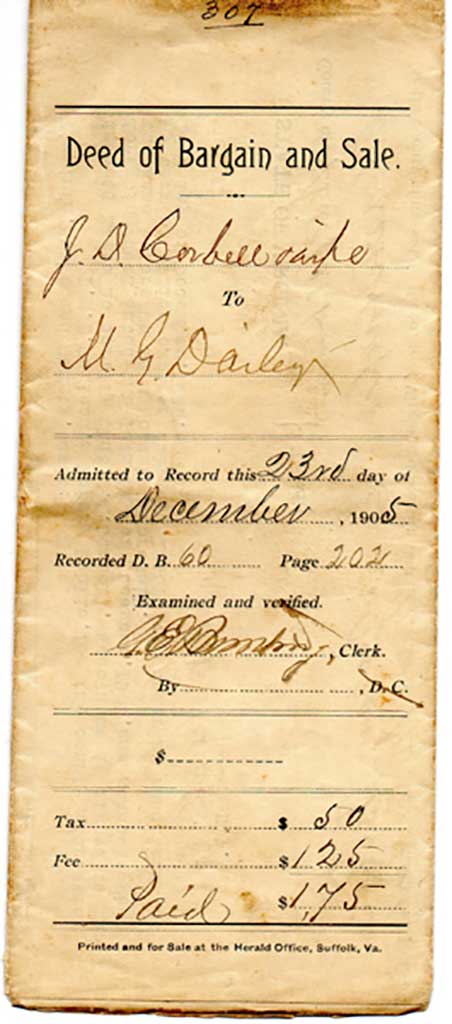 307
Deed of Bargain and Sale.
J. D. Corbell
To
M. G. Darley
Admitted to Record this 23rd day of
December, 1905
Recorded D. B. 60 Page 202
Examined and verified.
, Clerk.
By , D. C.
$
Tax $ 50
Fee $ 1 25
Paid $ 1,75
Printed and for Sale at the Herald Office, Suffolk, Va.